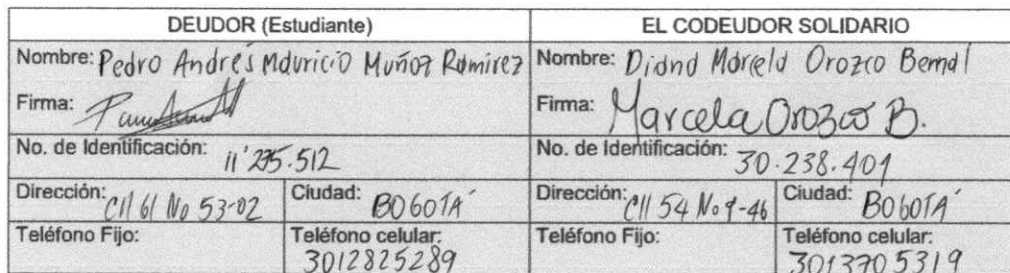 DEUDOR (Estudiante) EL CODEUDOR SOLIDARIO
Nombre: Pedro Andrés Mauricio Muñoz Ramirez Nombre: Diana Marcela Orozco Bernal
Firma: Firma: Marcela Orozco B.
No. de Identificación: 11'275.512 No. de Identificación: 30.238.401
Dirección: Cll 61 No 53-02 Ciudad: BOGOTÁ Dirección: Cll 54 No 9-46 Ciudad: BOGOTÁ
Teléfono Fijo: Teléfono celular: Teléfono Fijo: Teléfono celular:
3012825289 3013705319